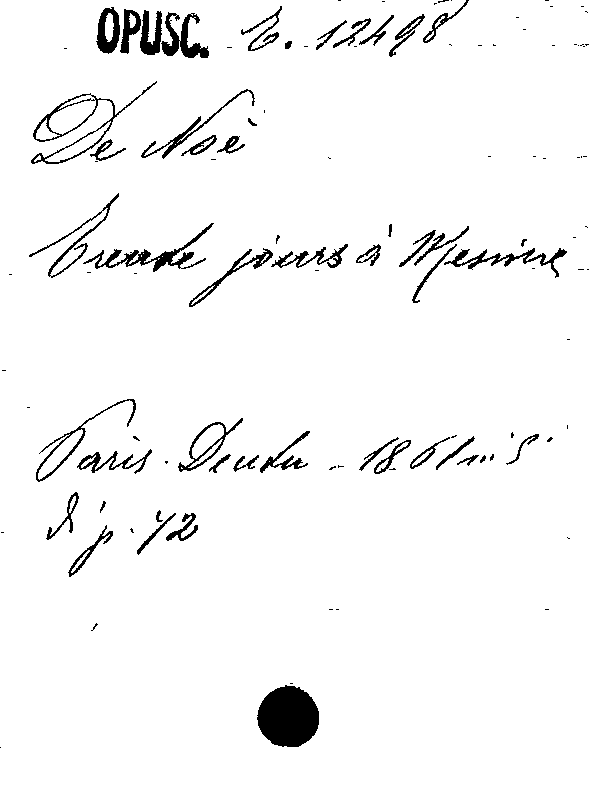 OPUSC. E. 12498
De Noê
Trente jours à Messine
Paris. Dentu - 1861 in 8°
di p. 72